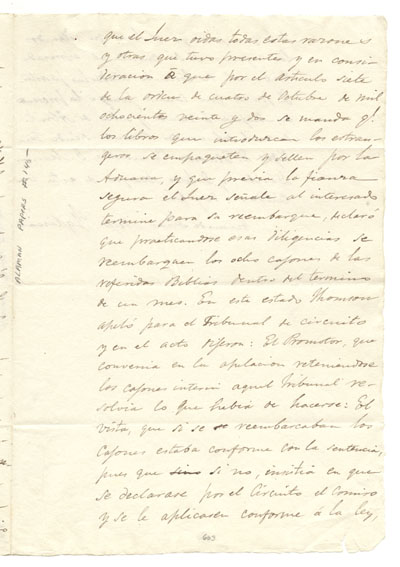 que el Juez oidas todas estas razones
y otras que tuvo presente, y en consi-
deracion á que por el articulo siete
de la orden de cuatro de Octubre de mil
ochocientos veinte y dos se manda q.e
los libros que introduzcan los estran-
geros se empaqueten y sellen por la
Aduana, y que previa la fianza
segura el Juez señale al interesado
termino para su reembarque, declaró
que practicandose esas diligencias se
reembarquen los ocho cajones de las
referidas Biblias dentro del termino
de un mes. En este estado Thomson
apeló para el Tribunal de circuito
y en el acto dijeron: El Promotor, que
convenia en la apelacion reteniendose
los cajones interin aquel Tribunal re-
solvia lo que habia de hacerse: El
vista, que si se reembarcaban los
cajones estaba conforme con la sentencia,
pues que sino si no, insistia en que
se declarase por el Circuito el Comiso
y se le aplicasen conforme á la ley,
ALAMAN PAPERS